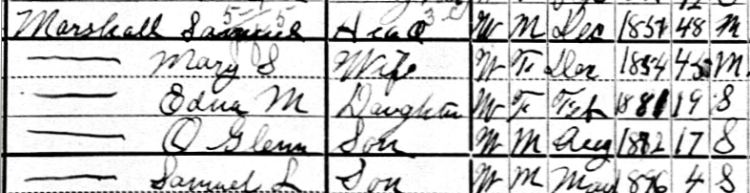 Marshall Samuel Head W M Dec 1851 48 M
— Mary S Wife W F Dec 1854 45 M
— Edna M Daughter W F Feb 1881 19 S
— O Glenn Son W M Aug 1882 17 S
— Samuel L Son W M May 1896 4 S